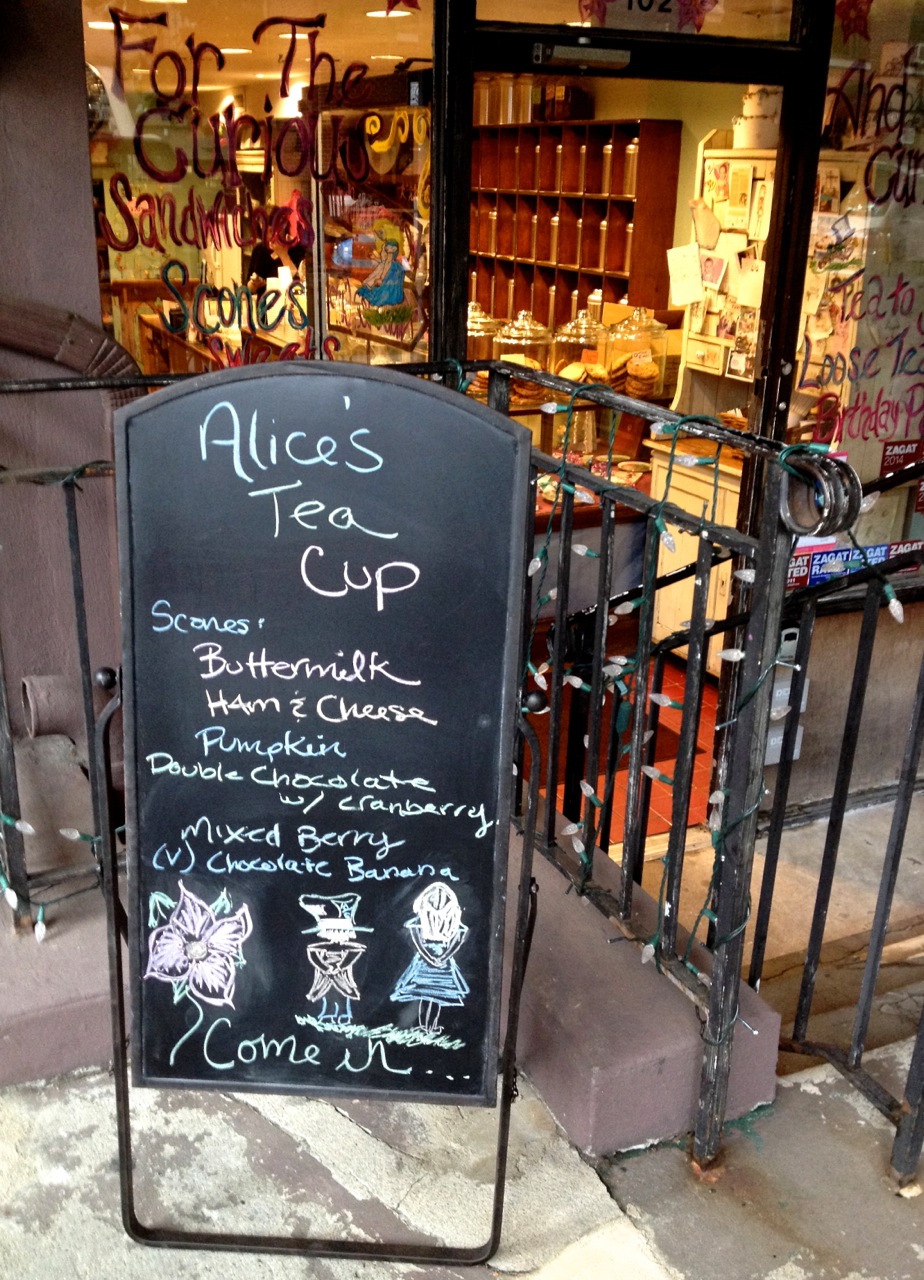 102
For The
Curious
Sandwiches
Scones
Sweets
And
Tea to
Loose Tea
Birthday
ZAGAT
2014
ZAGAT
ZAGAT
ZAGAT
Alice's
Tea
Cup
Scones:
Buttermilk
Ham & Cheese
Pumpkin
Double Chocolate
w/ cranberry
Mixed Berry
(V) Chocolate Banana
Come in....